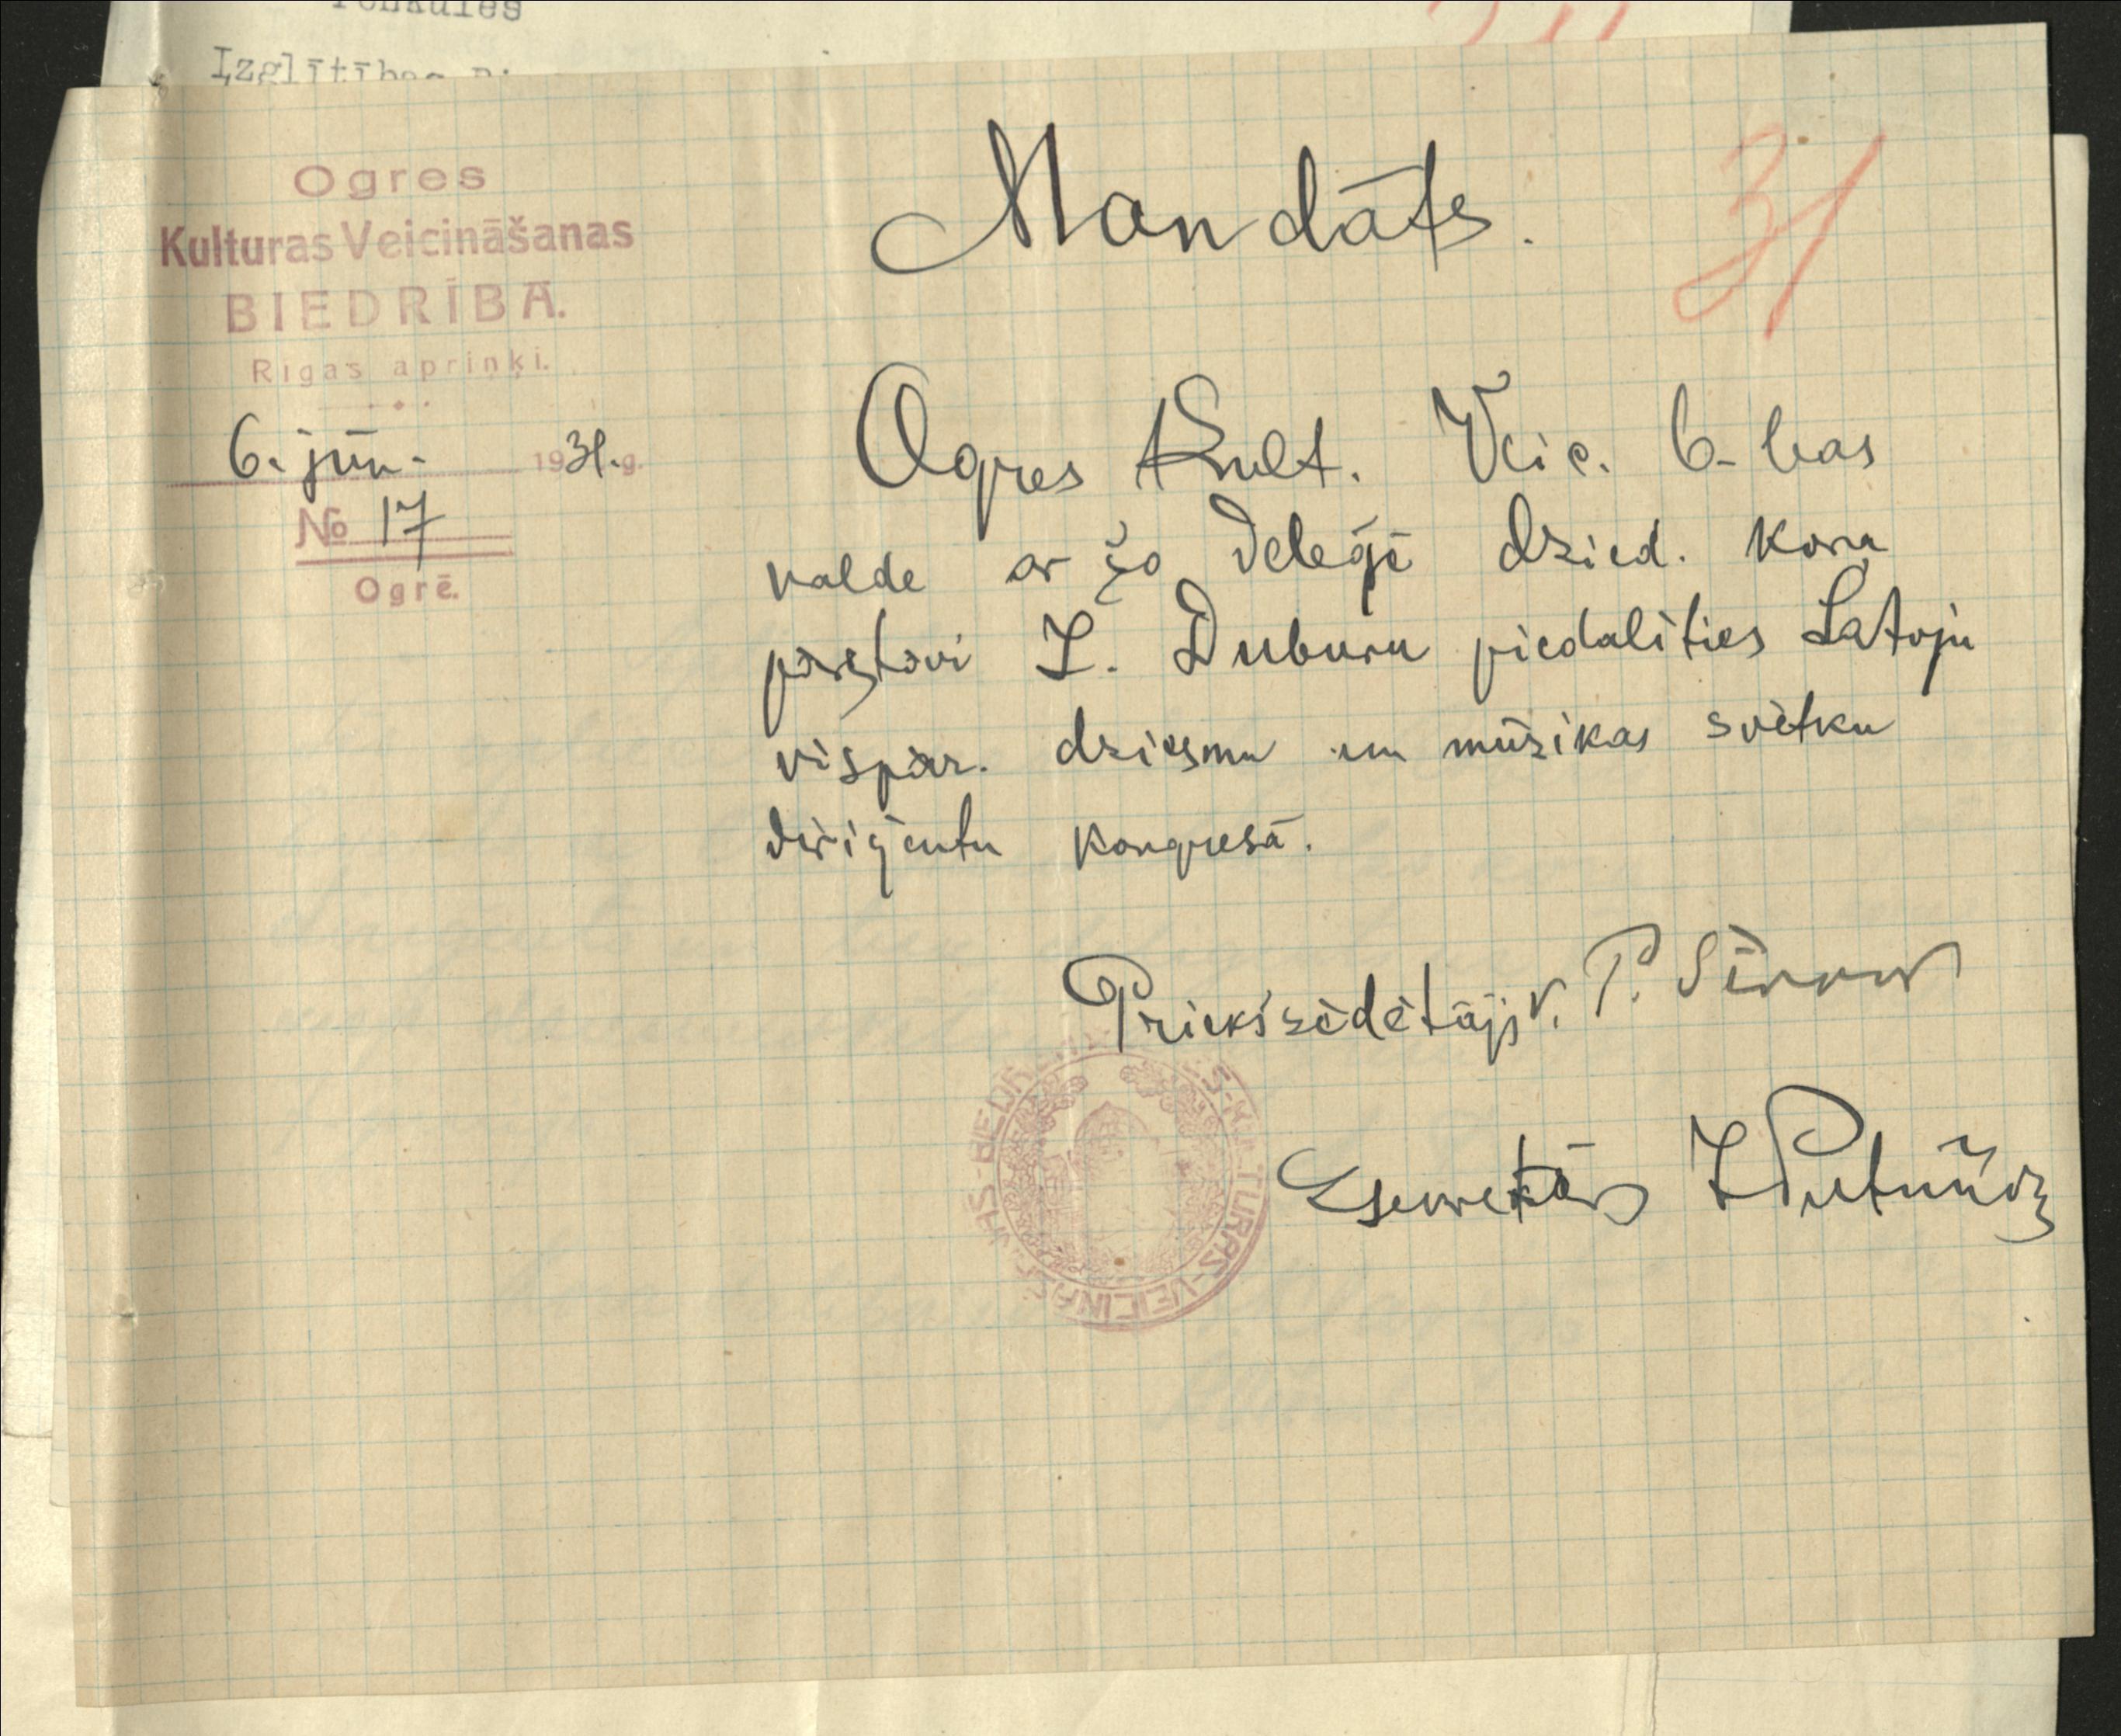 Izglītības
Ogres
Kulturas Veicināšanas
BIEDRĪBA.
Rīgas apriņķi.
6. jūn. 1931. g.
№ 17
Ogrē.
Mandāts.
31
Ogres Kult. Veic. b-bas
valde ar šo deleģē dzied. kora
pārstāvi L. Duburu piedalīties Latvju
vispār. dziesmu un mūzikas svētku
diriģentu kongresā.
Priekšsēdētājs v. P.
Sekretārs
KULTURAS-VEICINĀŠANAS-BIEDR